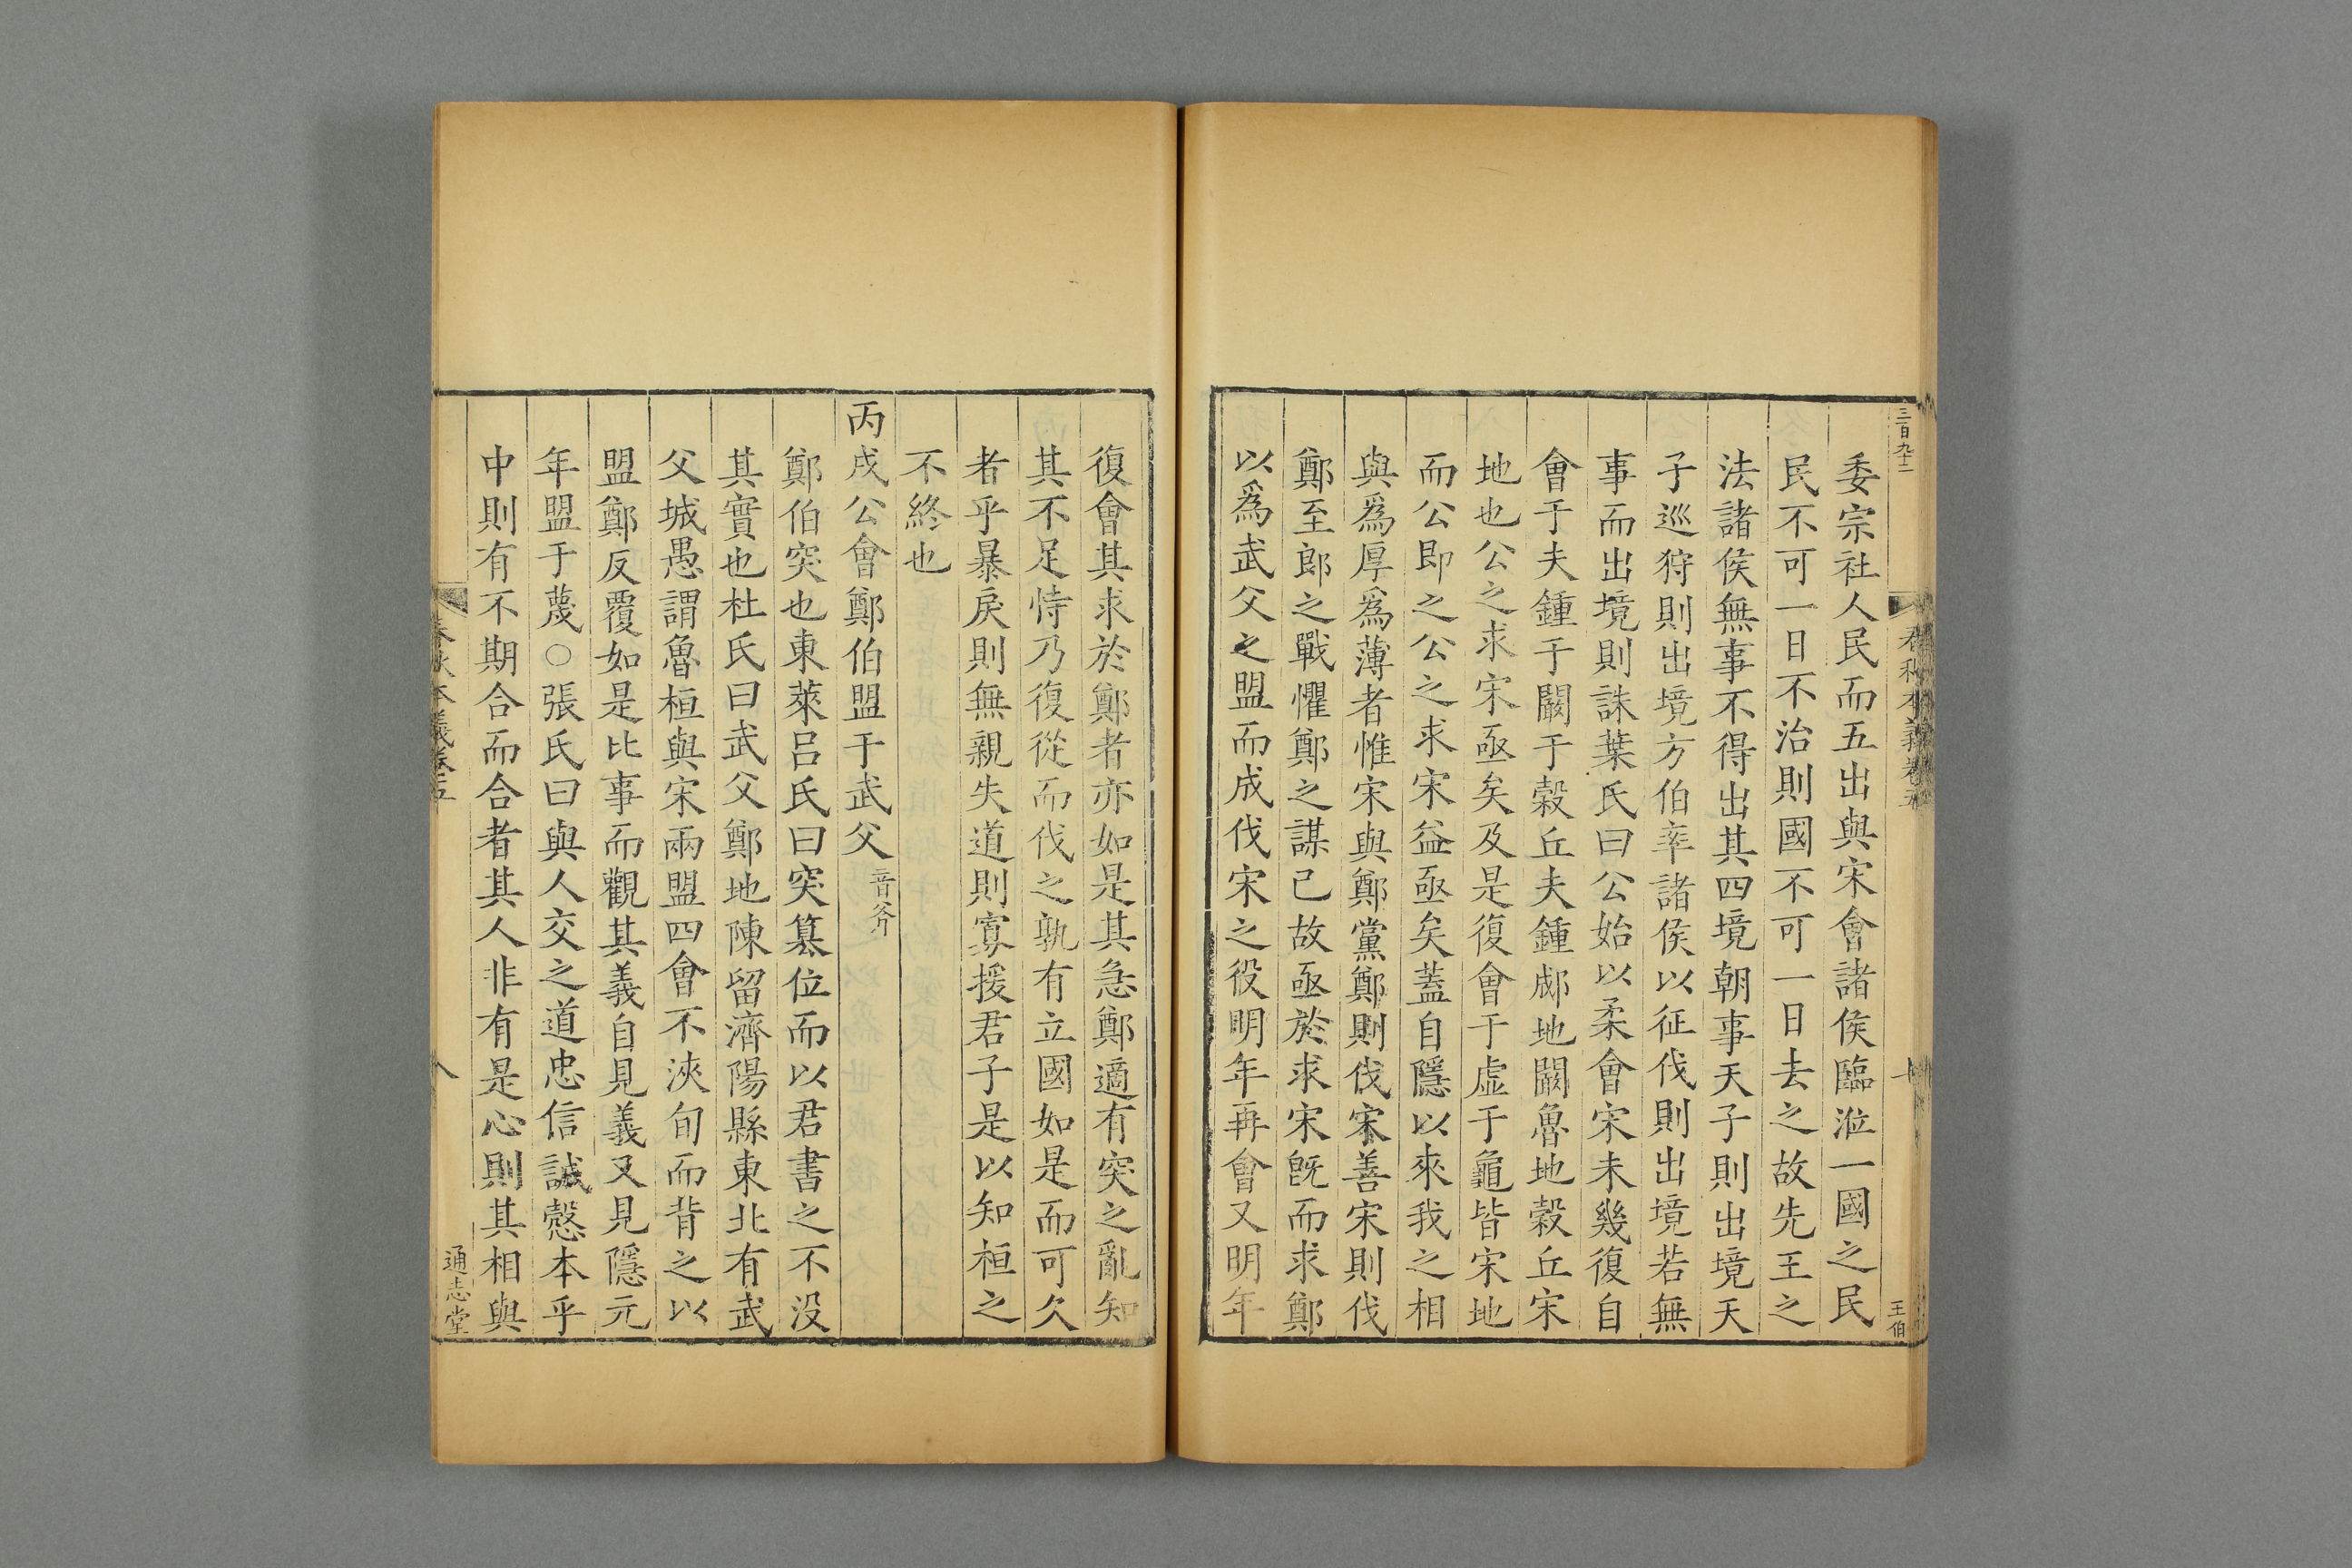 三百九十二
春秋本義卷五
王伯
委宗社人民而五出與宋會諸侯臨涖一國之民
民不可一日不治則國不可一日去之故先王之
法諸侯無事不得出其四境朝事天子則出境天
子巡狩則出境方伯率諸侯以征伐則出境若無
事而出境則誅葉氏曰公始以柔會宋未幾復自
會于夫鍾于闞于穀丘夫鍾郕地闞魯地穀丘宋
地也公之求宋亟矣及是復會于虛于龜皆宋地
而公即之公之求宋益亟矣蓋自隱以來我之相
與爲厚爲薄者惟宋與鄭黨鄭則伐宋善宋則伐
鄭至郎之戰懼鄭之謀己故亟於求宋旣而求鄭
以爲武父之盟而成伐宋之役明年再會又明年
復會其求於鄭者亦如是其急鄭適有突之亂知
其不足恃乃復從而伐之孰有立國如是而可久
者乎暴戾則無親失道則寡援君子是以知桓之
不終也
丙戌公會鄭伯盟于武父音斧
鄭伯突也東萊呂氏曰突簒位而以君書之不没
其實也杜氏曰武父鄭地陳留濟陽縣東北有武
父城愚謂魯桓與宋兩盟四會不浹旬而背之以
盟鄭反覆如是比事而觀其義自見義又見隱元
年盟于蔑○張氏曰與人交之道忠信誠慤本乎
中則有不期合而合者其人非有是心則其相與
春秋本義卷五
八
通志堂